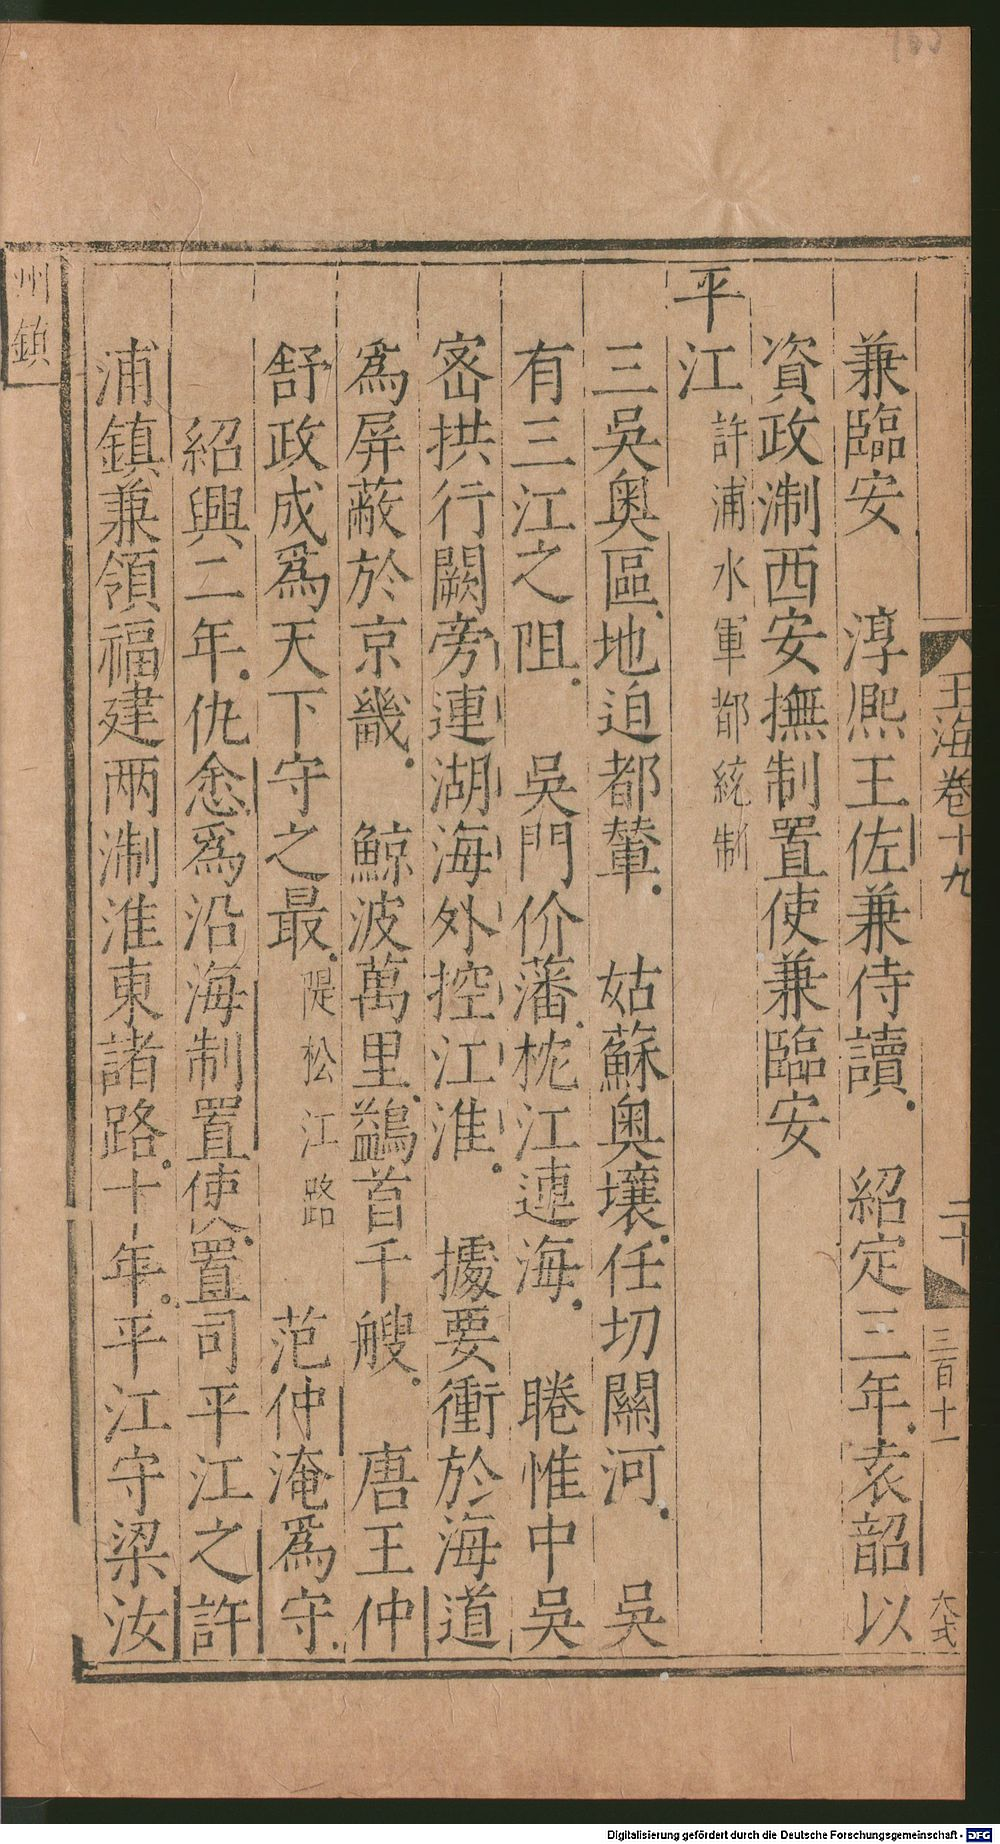 玉海卷十九
二十
三百十一
大弍
兼臨安　淳熈王佐兼侍讀　紹定三年袁韶以
資政淛西安撫制置使兼臨安
平江許浦水軍都統制
三吳奥區地迫都輦　姑蘇奥壤任切關河　吳
有三江之阻　吳門价藩枕江連海　睠惟中吳
宻拱行闕旁連湖海外控江淮　據要衝於海道
爲屏蔽於京畿　鯨波萬里鷁首千艘　唐王仲
舒政成爲天下守之最隄松江路　范仲淹爲守
紹興二年仇悆爲沿海制置使置司平江之許
浦鎮兼領福建两淛淮東諸路十年平江守梁汝
州鎮
Digitalisierung gefördert durch die Deutsche Forschungsgemeinschaft - DFG